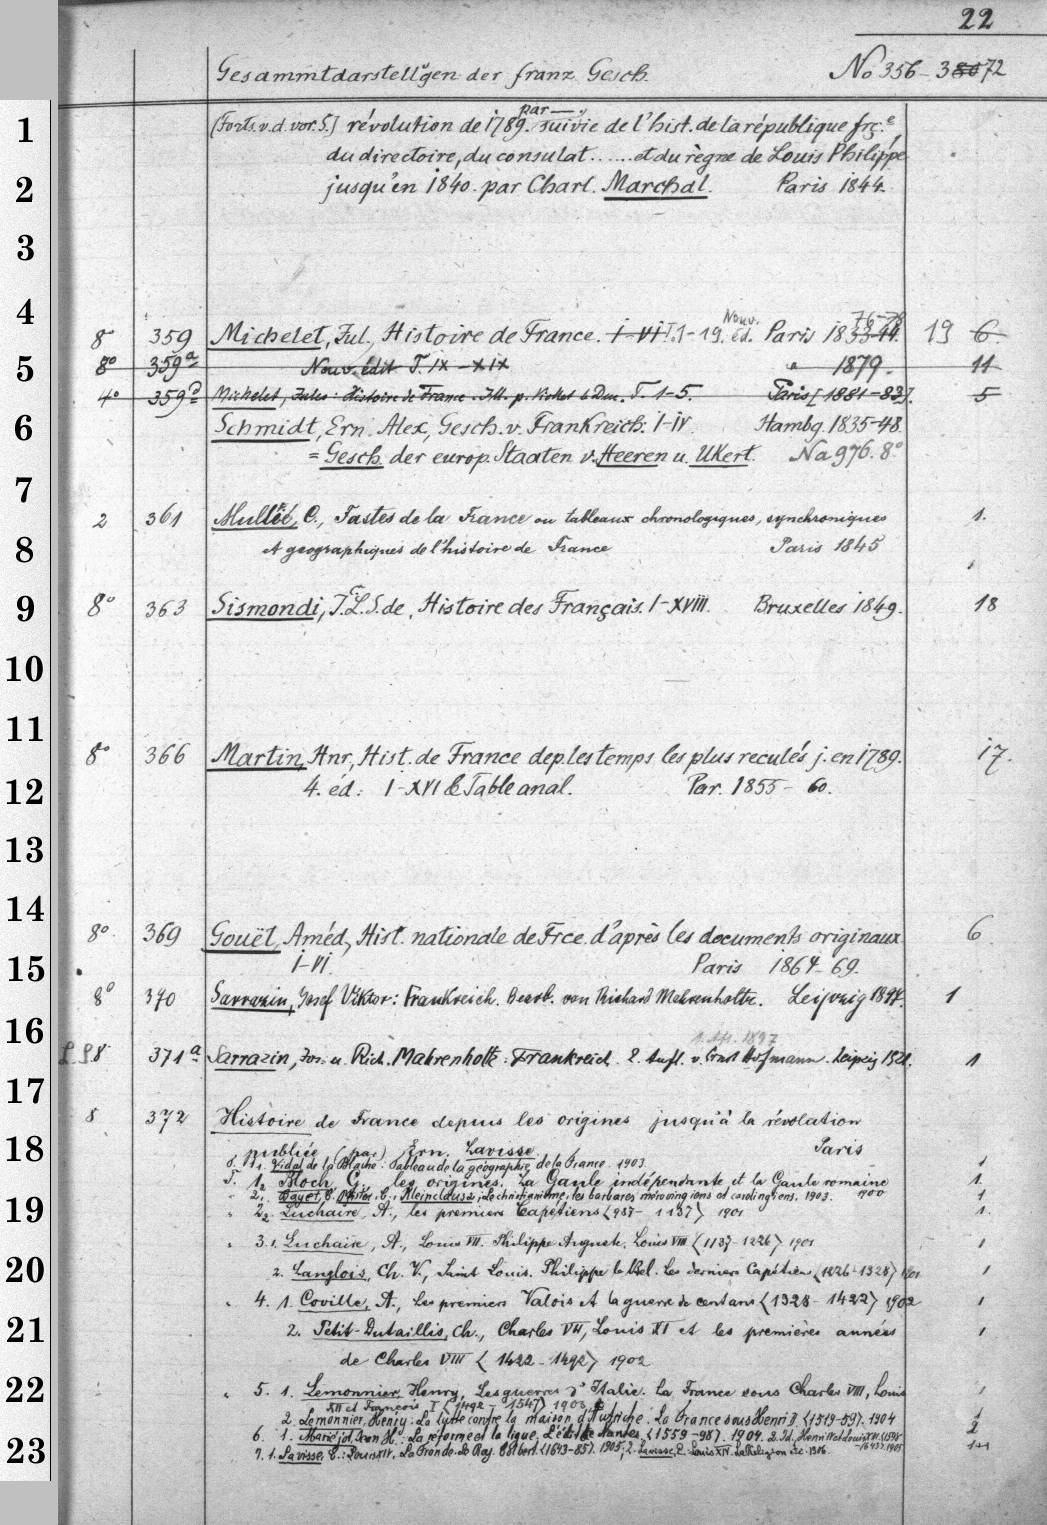 22
Gesammtdarstellgen der franz Gesch. No 356-38072
[Forts. v. d. vor. S.] révolution de 1789. par — suivie de l'hist. de la république frç.e
du directoire, du consulat ...... et du règne de Louis Philippe
jusqu'en 1840. par Charl. Marchal. Paris 1844.
8° 359 Michelet, Jul., Histoire de France. I-VI T. 1-19. Nouv. éd. Paris 1833-44. 76-78 19 6
8° 359a Nouv. édit T. IX-XIX " 1879. 11
4° 359b Michelet, Jules: Histoire de France. Ill. p. T. 1-5. Paris [1881-83]. 5
Schmidt, Ern. Alex, Gesch. v. Frankreich. I-IV Hambg. 1835-48.
= Gesch. der europ. Staaten v. Heeren u. Ukert. Na 976. 8°
2 361 Mullié, C., Fastes de la France ou tableaux chronologiques, synchroniques 1.
et géographiques de l'histoire de France Paris 1845
8° 363 Sismondi, J. C. L. S. de, Histoire des Français. I-XVIII. Bruxelles 1849. 18
8° 366 Martin, Hnr, Hist. de France dep. les temps les plus reculés j. en 1789. 17.
4. éd. I-XVI & Table anal. Par. 1855-60.
8° 369 Gouët, Améd, Hist. nationale de Frce. d'après les documents originaux 6
I-VI. Paris 1864-69.
8° 370 Sarrazin, Josef Viktor: Frankreich. Bearb. von Richard Mahrenholtz. Leipzig 1897. 1
1. Afl. 1897
L S 8 371a Sarrazin, Jos. u. Rich. Mahrenholtz: Frankreich. 2. Aufl. v. Ernst Hofmann. Leipzig 1921. 1
8 372 Histoire de France depuis les origines jusqu'à la révolution
publiée (par) Ern. Lavisse. Paris
1. Vidal de la Blache: Tableau de la géographie de la France. 1903. 1
T. 1. 2 Bloch, G., les origines. La Gaule indépendante et la Gaule romaine 1900 1.
" 2. 1 Bayet, C. Pfister, C., Kleinclausz, Le christianisme, les barbares, mérovingiens et carolingiens. 1903. 1
" 2. 2 Luchaire, A., les premiers Capétiens <987-1137> 1901 1.
" 3. 1. Luchaire, A., Louis VII. Philippe Auguste. Louis VIII <1137-1226> 1901 1
2. Langlois, Ch. V., Saint Louis. Philippe le Bel. Les derniers Capétiens <1226-1328> 1901 1
" 4. 1. Coville, A., les premiers Valois et la guerre de cent ans <1328-1422> 1902 1
2. Petit-Dutaillis, Ch., Charles VII, Louis XI et les premières années 1
de Charles VIII <1422-1492> 1902
" 5. 1. Lemonnier, Henry, Les guerres d'Italie. La France sous Charles VIII, Louis 1
XII et François I <1492-1547> 1903
2. Lemonnier, Henry: La lutte contre la maison d'Autriche. La France sous Henri II. <1519-59>. 1904 1
6. 1. Mariéjol, Jean H.: La réforme et la ligue, L'édit de Nantes <1559-98>. 1904. 2. Id., Henri IV et Louis XIII. <1598-1643>. 1905 2
7. 1. Lavisse, E.: Louis XIV. La Fronde. Le Roy. Colbert <1643-85>. 1905, 2. Lavisse, E. Louis XIV. La Religion etc. 1906. 1+1
1
2
3
4
5
6
7
8
9
10
11
12
13
14
15
16
17
18
19
20
21
22
23